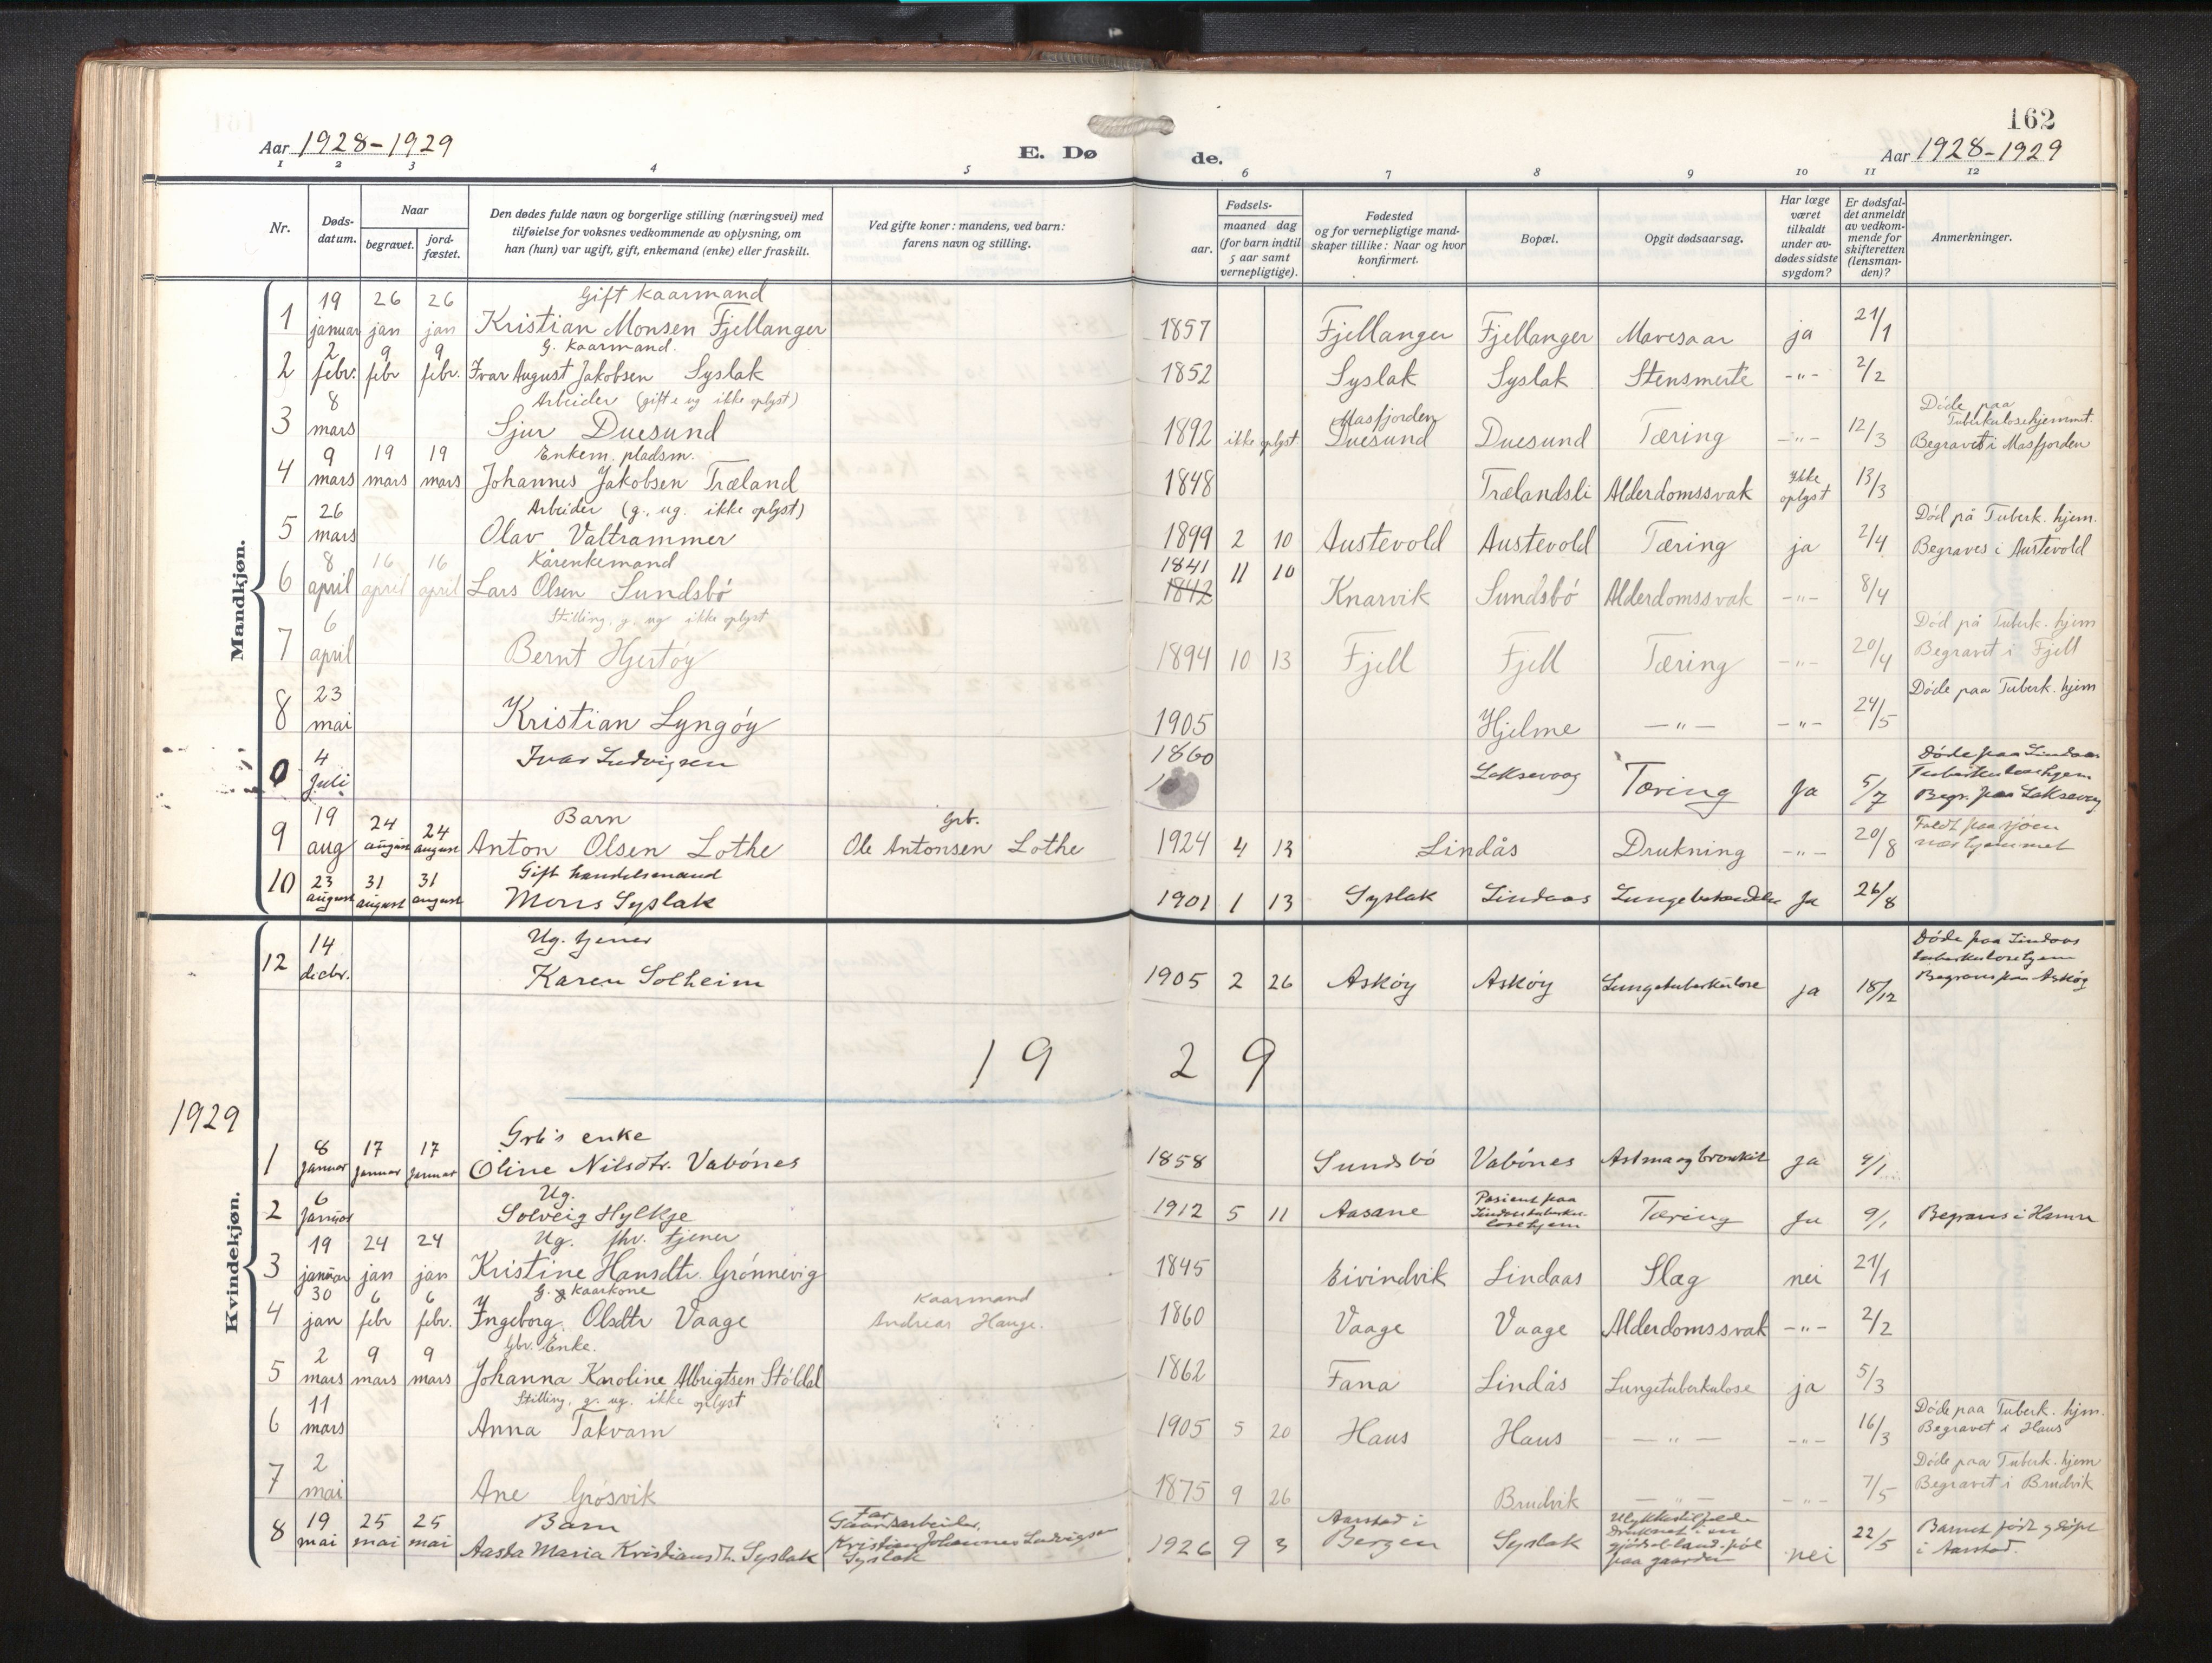 162
Aar 1928-1929
E. Dø
de.
Aar 1928-1929
1 2 3 4 5 6 7 8 9 10 11 12
Nr.
Døds-
datum.
Naar
begravet.
jord-
fæstet.
Den dødes fulde navn og borgerlige stilling (næringsvei) med
tilføielse for voksnes vedkommende av oplysning, om
han (hun) var ugift, gift, enkemand (enke) eller fraskilt.
Ved gifte koner: mandens, ved barn:
farens navn og stilling.
Fødsels-
aar.
maaned dag
(for barn indtil
5 aar samt
vernepligtige).
Fødested
og for vernepligtige mand-
skaper tillike: Naar og hvor
konfirmert.
Bopæl.
Opgit dødsaarsag.
Har læge
været
tilkaldt
under av-
dødes sidste
sygdom?
Er dødsfal-
det anmeldt
av vedkom-
mende for
skifteretten
(lensman-
den)?
Anmerkninger.
Mandkjøn.
Gift kaarmand
1 19 januar 26 jan 26 jan Kristian Monsen Fjellanger 1857 Fjellanger Fjellanger Mavesaar ja 21/1
G. kaarmand.
2 2 febr. 9 febr 9 febr. Ivar August Jakobsen Syslak 1852 Syslak Syslak Stensmerte -"- 2/2
Arbeider (gift e ug ikke oplyst)
3 8 mars Sjur Duesund 1892 ikke oplyst Masfjorden Duesund Duesund Tæring -"- 12/3 Døde paa
Tuberkulosehjemmet.
Begravet i Masfjorden
Enkem. pladsm.
4 9 mars 19 mars 19 mars Johannes Jakobsen Træland 1848 Trælandsli Alderdomssvak Ikke oplyst 13/3
Arbeider (g., ug. ikke oplyst)
5 26 mars Olav Valtrammer 1899 2 10 Austevold Austevold Tæring ja 2/4 Død på Tuberk. hjem.
Begraves i Austevold
Kårenkemand
6 8 april 16 april 16 april Lars Olsen Sundsbø 1841 1842 11 10 Knarvik Sundsbø Alderdomssvak -"- 8/4
Stilling, g. ug ikke oplyst
7 6 april Bernt Hjertøy 1894 10 13 Fjell Fjell Tæring -"- 20/4 Død på Tuberk. hjem
Begravet i Fjell
8 23 mai Kristian Lyngøy 1905 Hjelme -"- -"- 24/5 Døde paa Tuberk. hjem
0 4 Juli Ivar Ludvigsen 1860 Laksevaag Tæring Ja 5/7 Døde paa Lindaas
Tuberkulosehjem
Begr. paa Laksevag
Barn
9 19 aug 24 august 24 august Anton Olsen Lothe Grb. Ole Antonsen Lothe 1924 4 13 Lindås Drukning -"- 20/8 Faldt paa sjøen
nær hjemmet
Gift handelsmand
10 23 august 31 august 31 august Mons Syslak 1901 1 13 Syslak Lindaas Ja 26/8
Ug. tjener
12 14 decbr. Karen Solheim 1905 2 26 Askøy Askøy Lungetuberkulose ja 18/12 Døde paa Lindaas
tuberkulosehjem
Begraves paa Askøy
1 9 2 9
1929
Kvindekjøn.
Grb's enke
1 8 Januar 17 Januar 17 Januar Oline Nilsdtr. Vabønes 1858 Sundsbø Vabønes Astma og bronkit Ja 9/1
Ug.
2 6 Januar Solveig Hylkje 1912 5 11 Aasane Pasient paa
Lindaas tuberku-
losehjem Tæring Ja 9/1 Begraves i Hamre
Ug. fhv. tjener
3 19 januar 24 jan 24 jan Kristine Hansdtr. Grønnevig 1845 Eivindvik Lindaas Slag nei 21/1
G. kaarkone
4 30 jan 6 febr 6 febr. Ingeborg Olsdtr Vaage Kaarmand
Andreas Hauge. 1860 Vaage Vaage Alderdomssvak -"- 2/2
Gbr. Enke.
5 2 mars 9 mars 9 mars Johanna Karoline Albrigtsen Støldal 1862 Fana Lindås Lungetuberkulose ja 5/3
Stilling, g. ug. ikke oplyst
6 11 mars Anna Takvam 1905 5 20 Haus Haus -"- -"- 16/3 Døde paa Tuberk. hjm.
Begravet i Haus
7 2 mai Ane Grøsvik 1875 9 26 Brudvik -"- -"- 7/5 Døde paa Tuberk. hjem
Begravet i Brudvik
Barn
8 19 mai 25 mai 25 mai Aasta Maria Kristiansdtr. Syslak Far
Gaardsarbeider,
Kristian Johannes Ludvigsen
Syslak 1926 9 3 Aarstad i
Bergen Syslak Ulykkestilfelde
druknet i en
gjødsel-land-pøl
paa gaarden nei 22/5 Barnet født og døpt
i Aarstad.